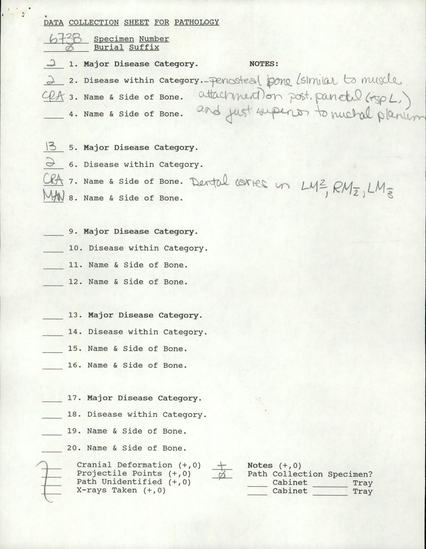 DATA COLLECTION SHEET FOR PATHOLOGY
673B Specimen Number
Ø Burial Suffix
2 1. Major Disease Category. NOTES:
2 2. Disease within Category. - periosteal bone (similar to muscle
CRA 3. Name & Side of Bone. attachment) on post. parietal (esp L.)
4. Name & Side of Bone. and just superior to nuchal planum
13 5. Major Disease Category.
2 6. Disease within Category.
CRA 7. Name & Side of Bone. Dental caries in LM2, RM2, LM3
MAN 8. Name & Side of Bone.
9. Major Disease Category.
10. Disease within Category.
11. Name & Side of Bone.
12. Name & Side of Bone.
13. Major Disease Category.
14. Disease within Category.
15. Name & Side of Bone.
16. Name & Side of Bone.
17. Major Disease Category.
18. Disease within Category.
19. Name & Side of Bone.
20. Name & Side of Bone.
Cranial Deformation (+,0) + Notes (+,0)
Projectile Points (+,0) Ø Path Collection Specimen?
Path Unidentified (+,0) Cabinet Tray
X-rays Taken (+,0) Cabinet Tray